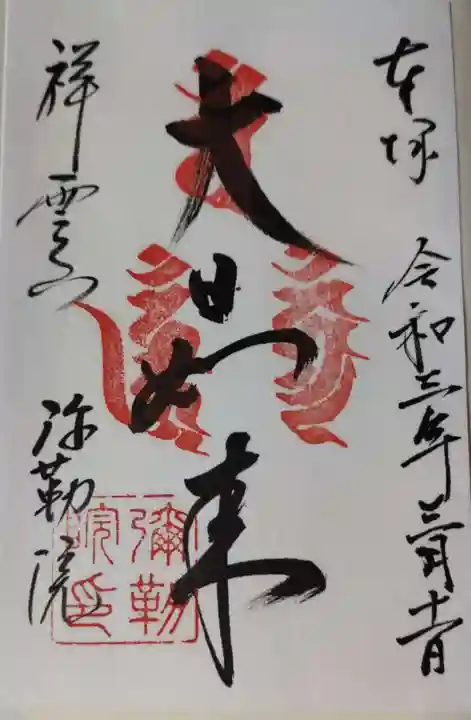 奉拝 令和三年三月十一日
大日如来
祥雲山 弥勒院
彌勒
院印